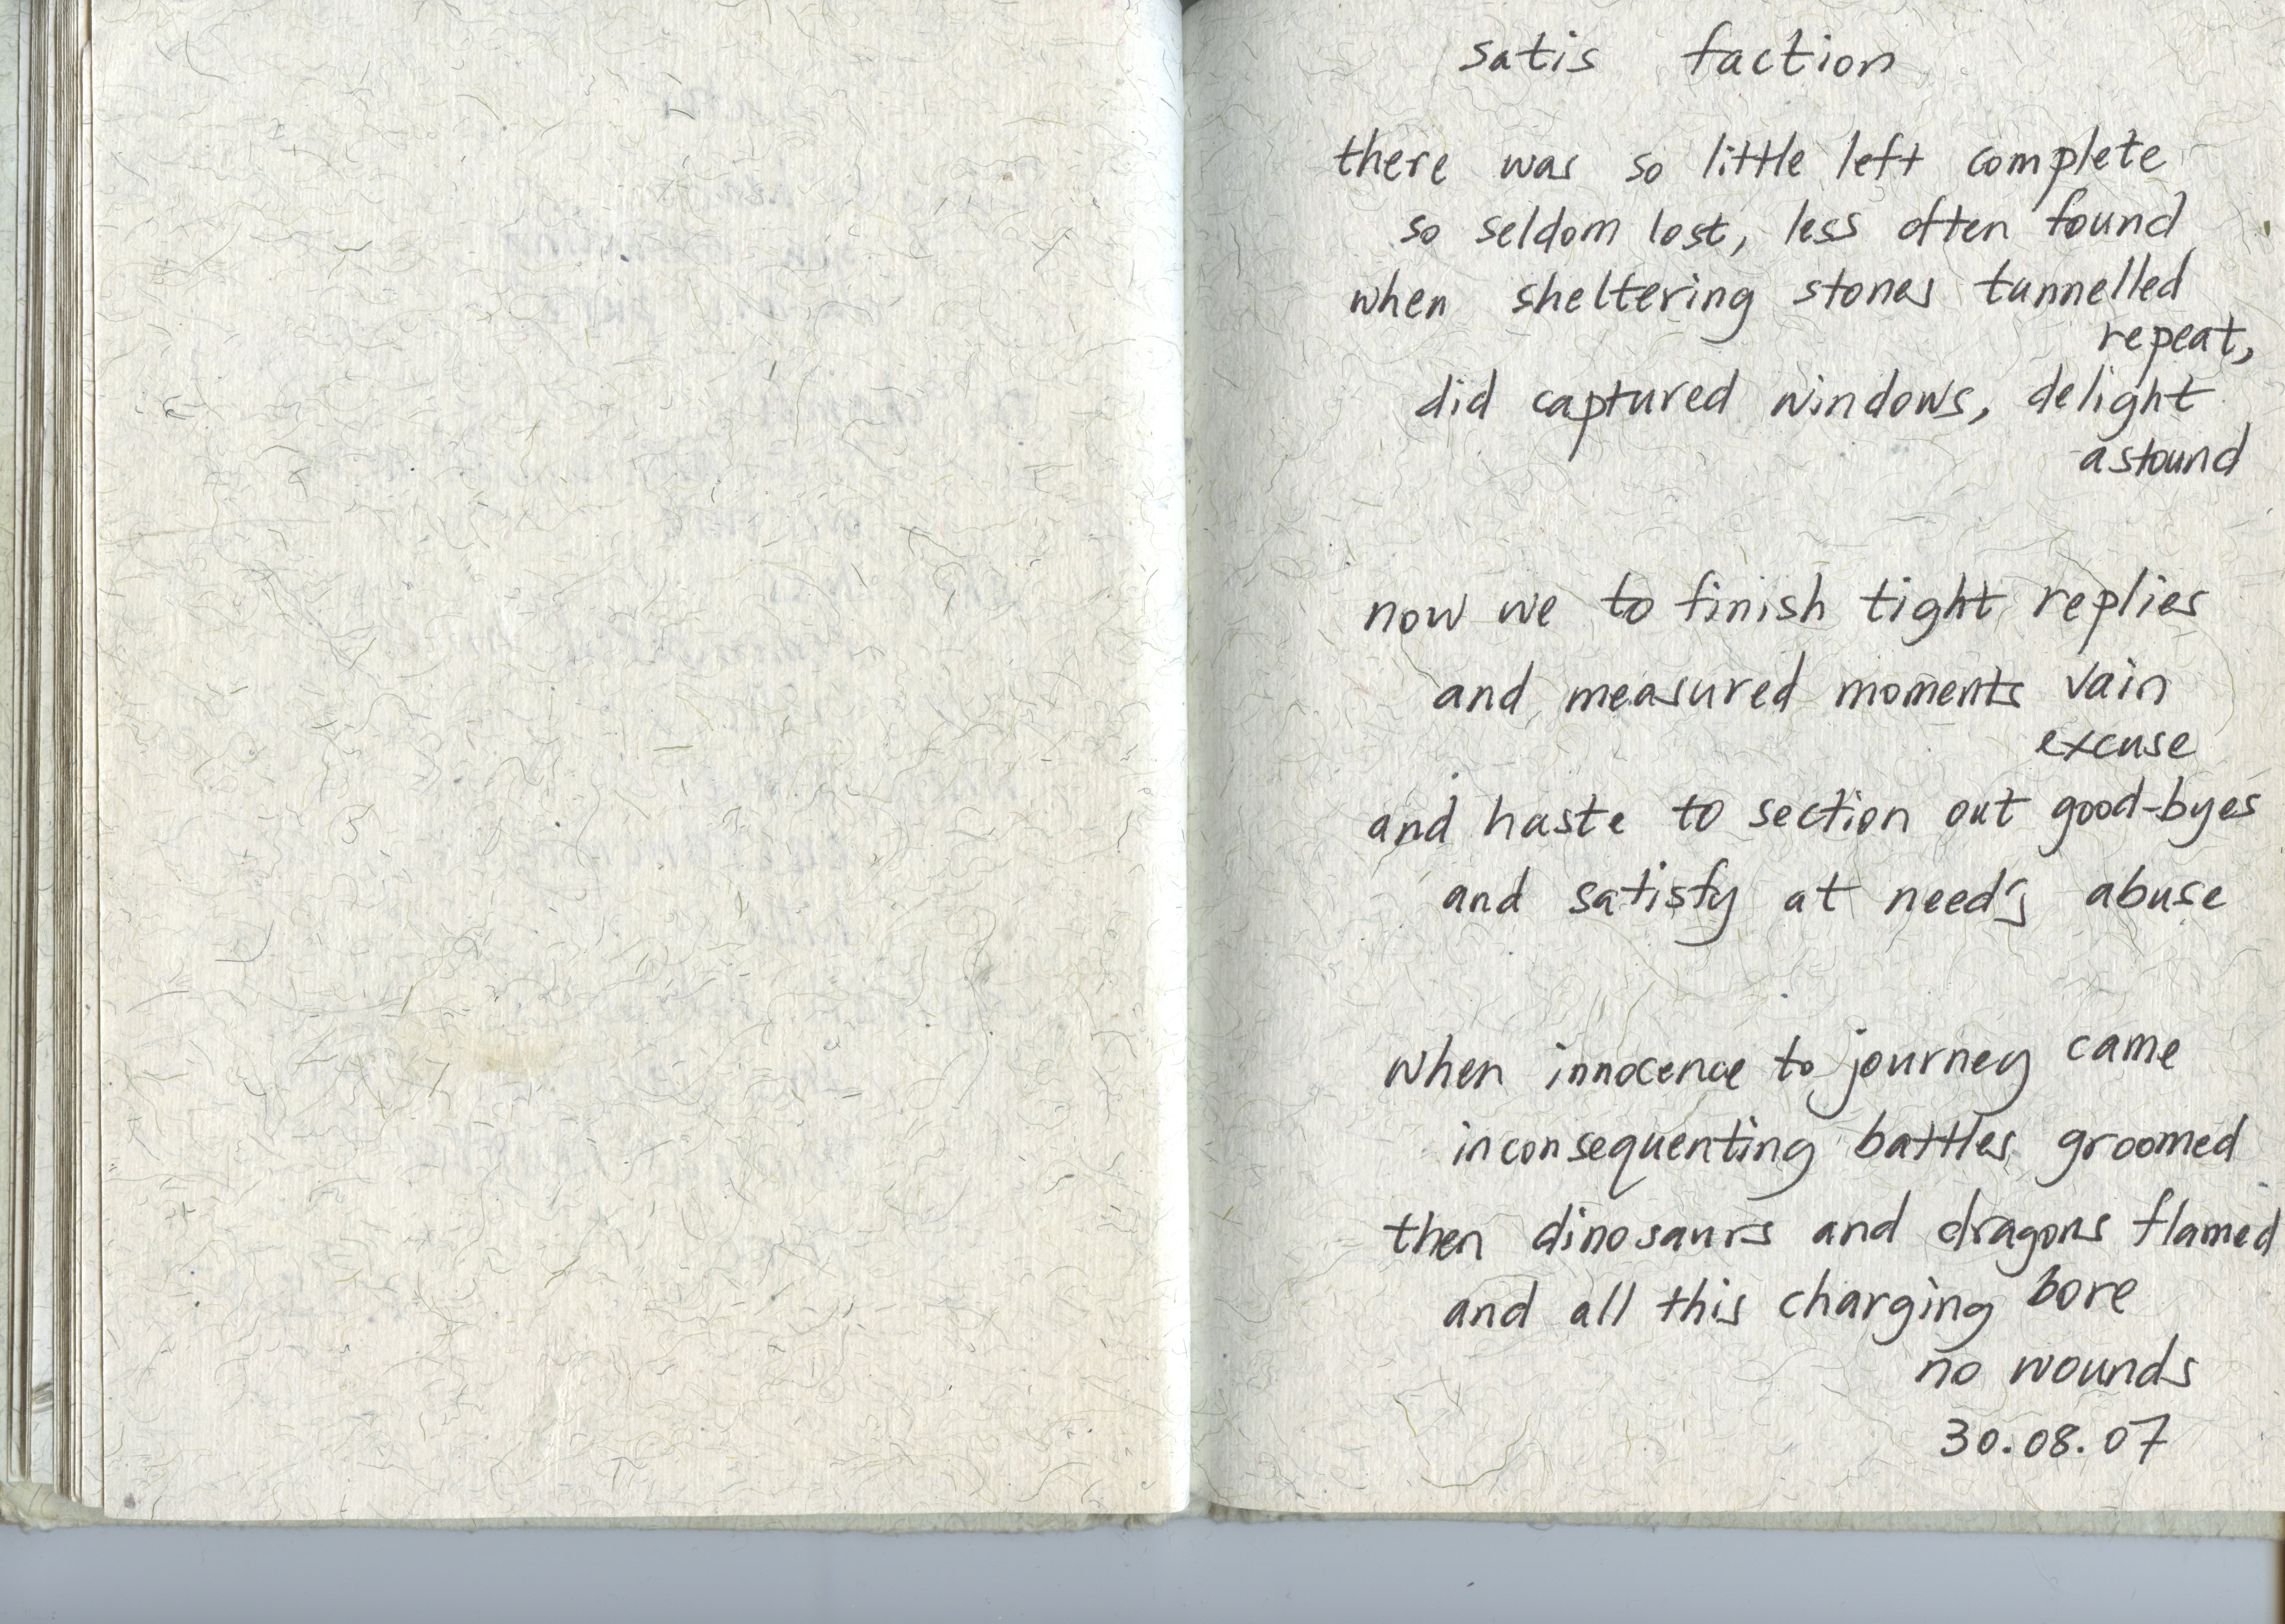 satis faction
there was so little left complete
so seldom lost, less often found
when sheltering stones tunnelled
repeat,
did captured windows, delight
astound
now we to finish tight replies
and measured moments vain
excuse
and haste to section out good-byes
and satisfy at need's abuse
when innocence to journey came
inconsequenting battles groomed
then dinosaurs and dragons flamed
and all this charging bore
no wounds
30.08.07